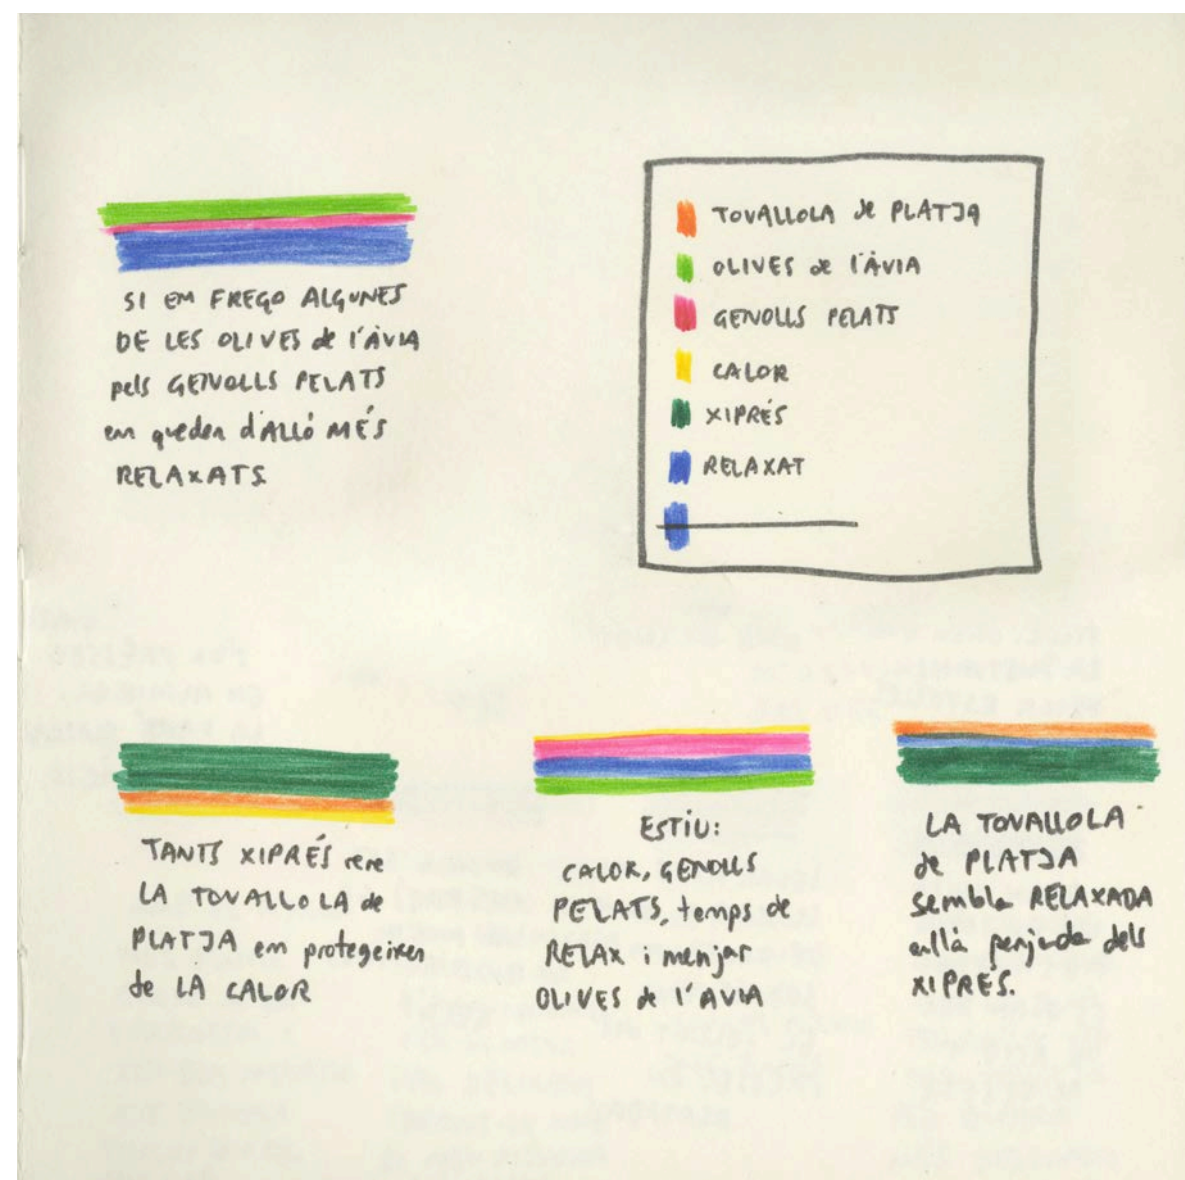 SI EM FREGO ALGUNES
DE LES OLIVES de l'ÀVIA
pels GENOLLS PELATS
em queden d'ALLÒ MÉS
RELAXATS
TOVALLOLA de PLATJA
OLIVES de l'ÀVIA
GENOLLS PELATS
CALOR
XIPRÉS
RELAXAT
TANTS XIPRÉS rere
LA TOVALLOLA de
PLATJA em protegeixen
de LA CALOR
ESTIU:
CALOR, GENOLLS
PELATS, temps de
RELAX i menjar
OLIVES de l'AVIA
LA TOVALLOLA
de PLATJA
sembla RELAXADA
allà penjada dels
XIPRÉS.